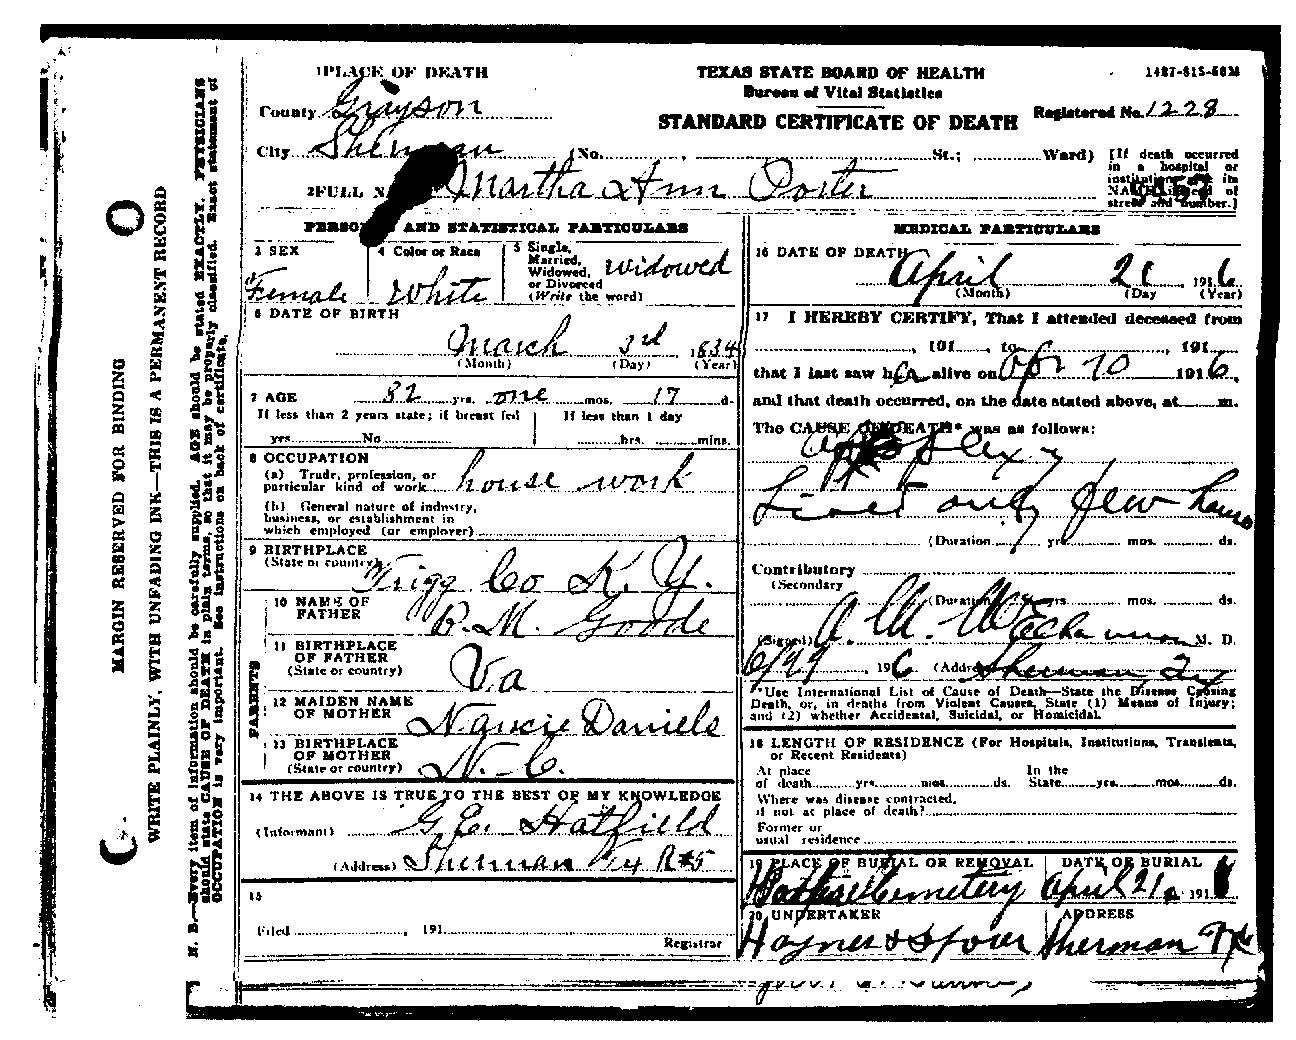 1 PLACE OF DEATH
TEXAS STATE BOARD OF HEALTH
1487-515-50M
Bureau of Vital Statistics
County Grayson
Registered No. 1228
STANDARD CERTIFICATE OF DEATH
City Sherman (No. , St.; Ward)
[If death occurred in a hospital or institution, give its NAME instead of street and number.]
2 FULL NAME Martha Ann Porter
PERSONAL AND STATISTICAL PARTICULARS
3 SEX
Female
4 Color or Race
White
5 Single, Married, Widowed, or Divorced (Write the word)
widowed
6 DATE OF BIRTH
March 3rd 1834
(Month) (Day) (Year)
7 AGE 82 yrs. one mos. 17 d.
If less than 2 years state; if breast fed
If less than 1 day
yrs. No hrs. mins.
8 OCCUPATION
(a) Trade, profession, or
particular kind of work house work
(b) General nature of industry,
business, or establishment in
which employed (or employer)
9 BIRTHPLACE
(State or country) Trigg Co K.Y.
PARENTS
10 NAME OF
FATHER R. M. Goode
11 BIRTHPLACE
OF FATHER
(State or country) Va
12 MAIDEN NAME
OF MOTHER Nancie Daniels
13 BIRTHPLACE
OF MOTHER
(State or country) N.C.
14 THE ABOVE IS TRUE TO THE BEST OF MY KNOWLEDGE
(Informant) G.E. Hatfield
(Address) Sherman Tx R#5
15
Filed , 191
Registrar
MEDICAL PARTICULARS
16 DATE OF DEATH
April 21 1916
(Month) (Day (Year)
17 I HEREBY CERTIFY, That I attended deceased from
, 191 , to , 191
that I last saw her alive on Apr 20 1916,
and that death occurred, on the date stated above, at m.
The CAUSE OF DEATH* was as follows:
Apoplexy
Lived only few hours
(Duration yrs. mos. ds.
Contributory
(Secondary
(Duration yrs. mos. ds.
(Signed) A. M. M. D.
191 6 (Address) Sherman, Tex
*Use International List of Cause of Death—State the Disease Causing
Death, or, in deaths from Violent Causes, State (1) Means of Injury;
and (2) whether Accidental, Suicidal, or Homicidal.
18 LENGTH OF RESIDENCE (For Hospitals, Institutions, Transients,
or Recent Residents)
At place In the
of death yrs. mos. ds. State yrs. mos. ds.
Where was disease contracted,
if not at place of death?
Former or
usual residence
19 PLACE OF BURIAL OR REMOVAL
Cemetery
DATE OF BURIAL
April 21, 191
20 UNDERTAKER
Haynes &
ADDRESS
Sherman Tx
MARGIN RESERVED FOR BINDING
WRITE PLAINLY, WITH UNFADING INK—THIS IS A PERMANENT RECORD
N. B.—Every item of information should be carefully supplied. AGE should be stated EXACTLY. PHYSICIANS
should state CAUSE OF DEATH in plain terms, so that it may be properly classified. Exact statement of
OCCUPATION is very important. See instructions on back of certificate.